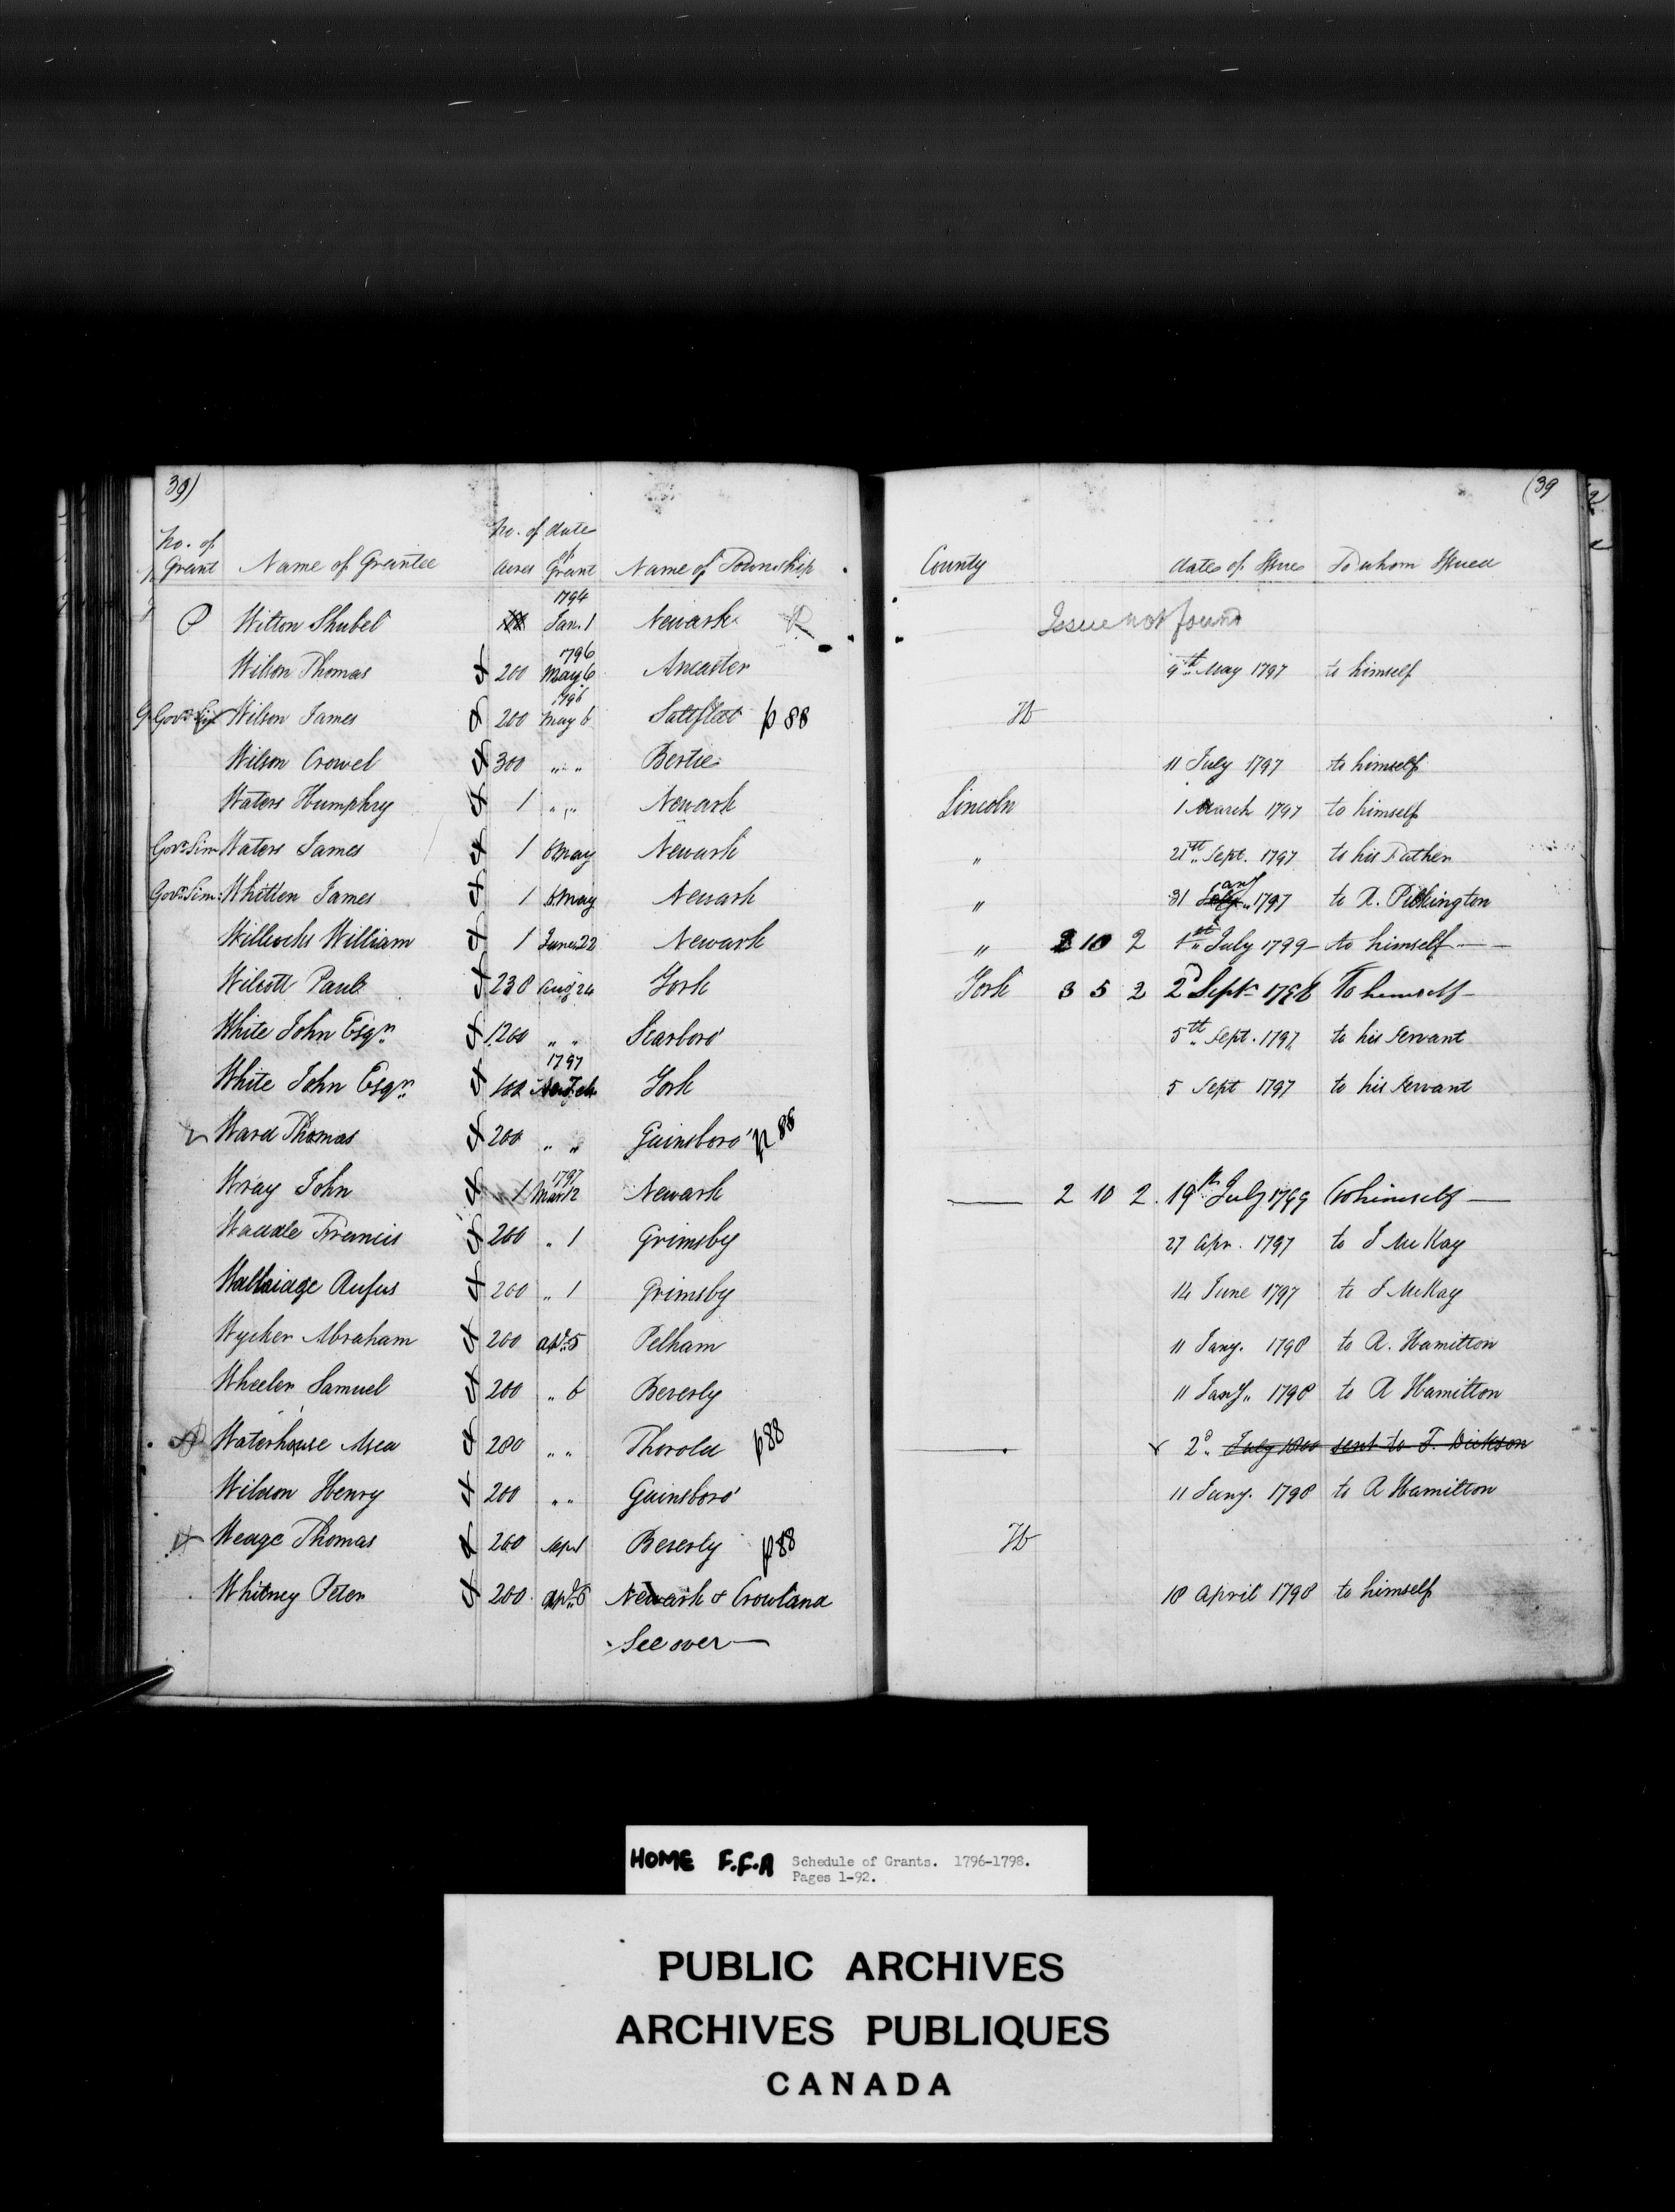 39) (39
No. of Grant Name of Grantee No. of Acres date of Grant Name of Township County dates of Issue To whom Issued
P Wilton Shubel 1794 Jan. 1 Newark Issue not found
Wilson Thomas 200 1796 May 6 Ancaster 9th May 1797 to himself
Govr. Sim Wilson James 200 1796 May 6 Saltfleet p 88
Wilson Crowel 300 " " Bertie 11 July 1797 to himself
Waters Humphry 1 " " Newark Lincoln 1 March 1797 to himself
Govr. Sim Waters James 1 6 May Newark " 21st Sept. 1797 to his Father
Govr. Sim: Whitten James 1 6 May Newark " 31 1797 to R. Pilkington
Willocks William 1 June 22 Newark " 2 10 2 1st July 1799 - to himself
Wilcott Paul 230 Aug 24 York York 3 5 2 2d Sept. To himself -
White John Esqr. 1200 " " Scarboro' 5th Sept. 1797 to his servant
White John Esqr. 1797 York 5 Sept 1797 to his servant
Ward Thomas 200 " " Gainsboro' p 88
Wray John 1 1797 Mar 12 Newark 2 10 2. 19th July 1799 to himself
Waddle Francis 200 " 1 Grimsby 27 Apr. 1797 to J McKay
Rufus 200 " 1 Grimsby 14 June 1797 to J McKay
Wycker Abraham 200 Apl. 5 Pelham 11 Jany. 1798 to R. Hamilton
Wheeler Samuel 200 " 6 Beverly 11 Jany. 1798 to R Hamilton
Waterhouse Asea 200 " " Thorold p 88 2d. July 1800 sent to T. Dickson
Wildson Henry 200 " " Gainsboro' 11 Jany. 1798 to R Hamilton
Weage Thomas 200 Beverly p 88
Whitney Peter 200 Apl. 6 Newark & Crowland 18 April 1798 to himself
See over
HOME F.F.A Schedule of Grants. 1796-1798.
Pages 1-92.
PUBLIC ARCHIVES
ARCHIVES PUBLIQUES
CANADA